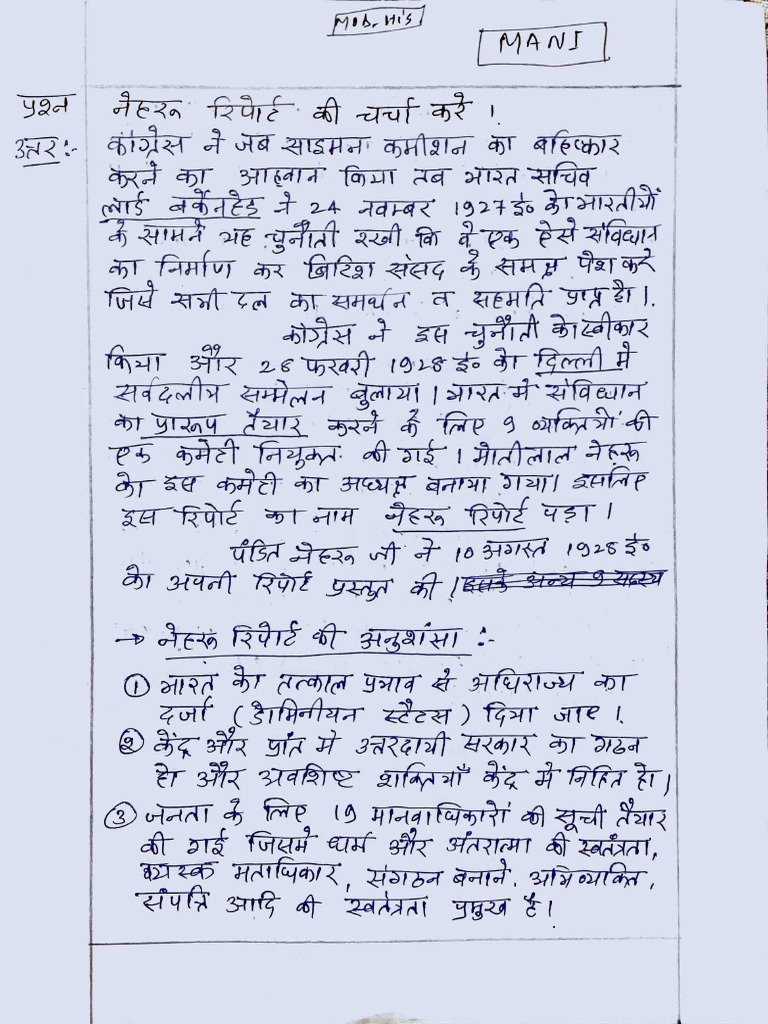 MOD. HIS
MANI
प्रश्न नेहरू रिपोर्ट की चर्चा करे ।
उत्तर:- कांग्रेस ने जब साइमन कमीशन का बहिष्कार
करने का आहवान किया तब भारत सचिव
लार्ड बर्केनहेड ने 24 नवम्बर 1927 ई० को भारतीयों
के सामने यह चुनौती रखी कि वे एक ऐसे संविधान
का निर्माण कर ब्रिटिश संसद के समक्ष पेश करे
जिसे सभी दल का समर्थन व सहमति प्राप्त हो ।
कांग्रेस ने इस चुनौती को स्वीकार
किया और 28 फरवरी 1928 ई० को दिल्ली मे
सर्वदलीय सम्मेलन बुलाया । भारत मे संविधान
का प्रारूप तैयार करने के लिए 9 व्यक्तियों की
एक कमेटी नियुक्त की गई । मोतीलाल नेहरू
को इस कमेटी का अध्यक्ष बनाया गया। इसलिए
इस रिपोर्ट का नाम नेहरू रिपोर्ट पड़ा ।
पंडित नेहरू जी ने 10 अगस्त 1928 ई०
को अपनी रिपोर्ट प्रस्तुत की । इसके अन्य 9 सदस्य
→ नेहरू रिपोर्ट की अनुशंसा :-
① भारत को तत्काल प्रभाव से अधिराज्य का
दर्जा (डोमिनीयन स्टैटस) दिया जाए ।
② केंद्र और प्रांत मे उत्तरदायी सरकार का गठन
हो और अवशिष्ट शक्तियाँ केंद्र मे निहित हो ।
③ जनता के लिए 19 मानवाधिकारों की सूची तैयार
की गई जिसमे धर्म और अंतरात्मा की स्वतंत्रता,
व्यस्क मताधिकार, संगठन बनाने, अभिव्यक्ति,
संपत्ति आदि की स्वतंत्रता प्रमुख है ।